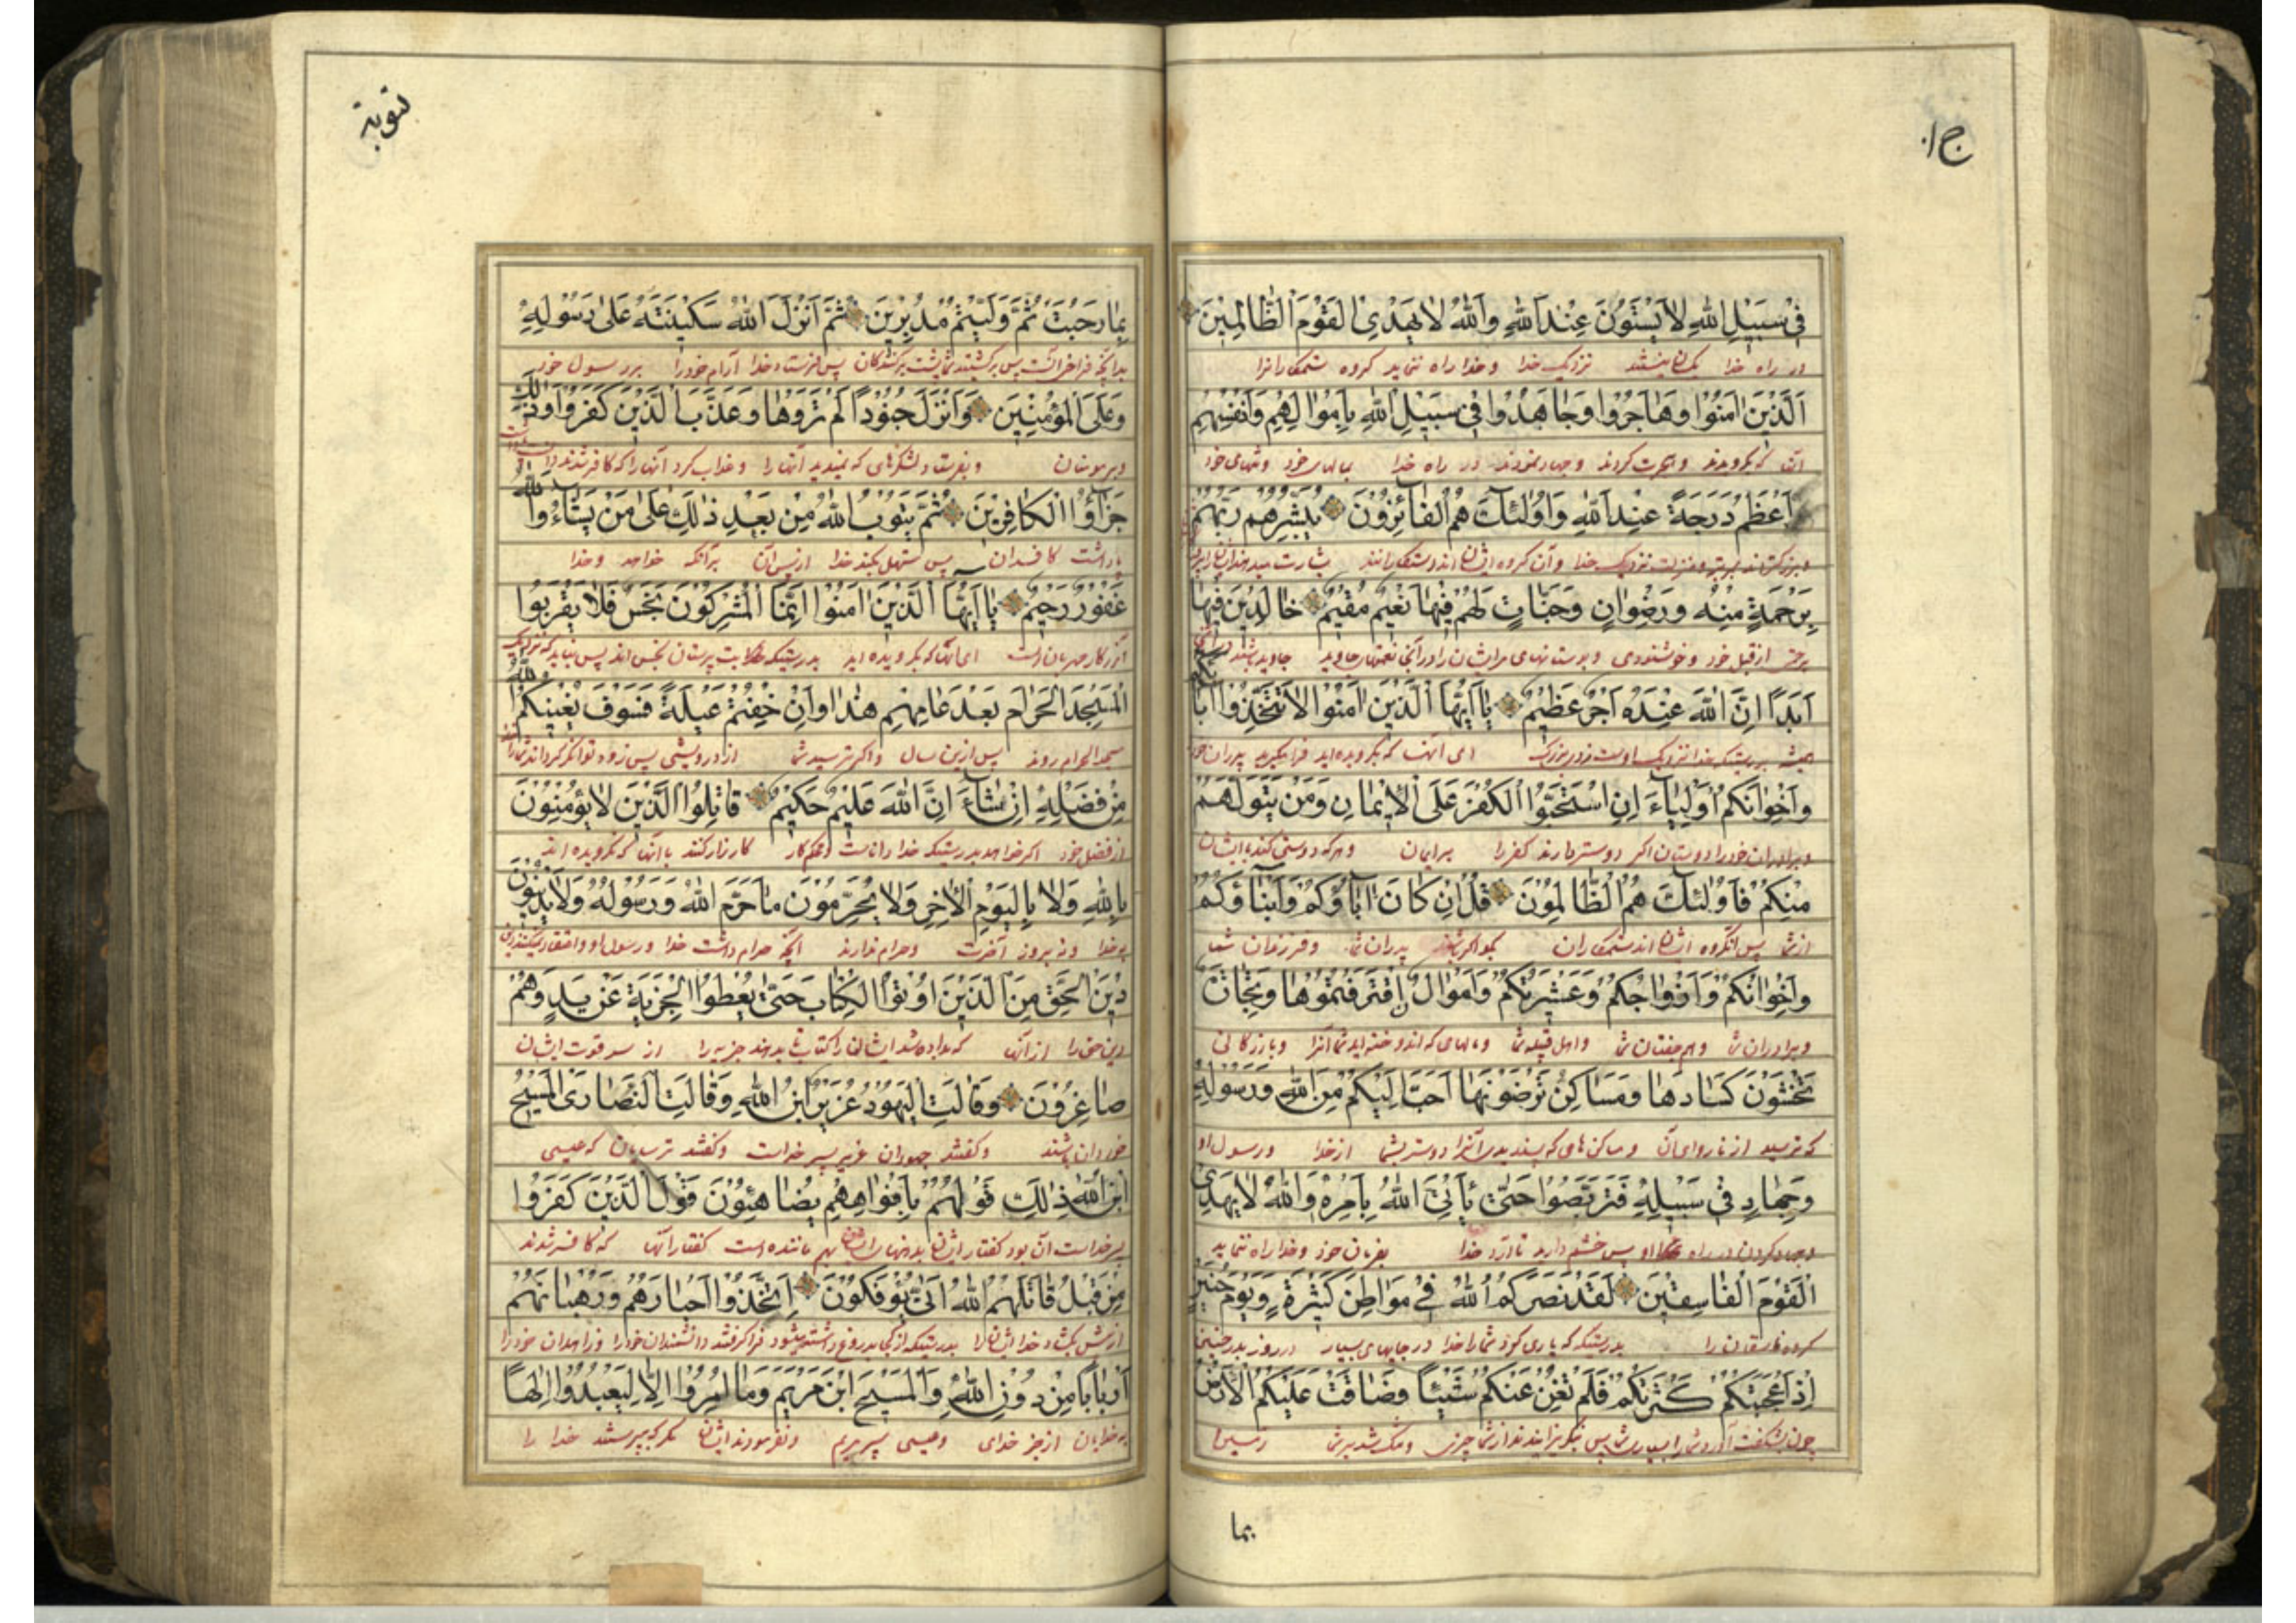 ج ١٠
فِي سَبِيلِ اللهِ لَا يَسْتَوُونَ عِنْدَ اللهِ وَاللهُ لَا يَهْدِي الْقَوْمَ الظَّالِمِينَ
در راه خدا یکسان نیستند نزدیک خدا و خدا راه ننماید کروه ستمکارانرا
اَلَّذِينَ اٰمَنُوا وَهَاجَرُوا وَجَاهَدُوا فِي سَبِيلِ اللهِ بِاَمْوَالِهِمْ وَاَنْفُسِهِمْ
آنها که بکرویدند و هجرت کردند و جهاد نمودند در راه خدا بمالهای خود و تنهای خود
اَعْظَمُ دَرَجَةً عِنْدَ اللهِ وَاُولٰئِكَ هُمُ الْفَائِزُونَ يُبَشِّرُهُمْ رَبُّهُمْ
خدا و آن کروه ایشان اند رستکارانند بشارت میدهد
بِرَحْمَةٍ مِنْهُ وَرِضْوَانٍ وَجَنَّاتٍ لَهُمْ فِيهَا نَعِيمٌ مُقِيمٌ خَالِدِينَ فِيهَا
از قبل خود و خوشنودی و بوستانهای مر ایشان را در آنجا نعمتهای جاوید جاوید باشند
اَبَدًا اِنَّ اللهَ عِنْدَهُ اَجْرٌ عَظِيمٌ يَا اَيُّهَا الَّذِينَ اٰمَنُوا لَا تَتَّخِذُوا اٰبَاءَكُمْ
همیشه بدرستیکه خدا نزدیک اوست مزد بزرک ای آنها که بکرویده اید فرا مکیرید پدران
وَاِخْوَانَكُمْ اَوْلِيَاءَ اِنِ اسْتَحَبُّوا الْكُفْرَ عَلَى الْاِيمَانِ وَمَنْ يَتَوَلَّهُمْ
و برادران خود را دوستان اکر دوستر دارند کفر را بر ایمان و هر که دوستی کند با ایشان
مِنْكُمْ فَاُولٰئِكَ هُمُ الظَّالِمُونَ قُلْ اِنْ كَانَ اٰبَاؤُكُمْ وَاَبْنَاؤُكُمْ
از شما پس آنکروه ایشان اند ستمکاران بکو اکر باشند پدران شما و فرزندان شما
وَاِخْوَانُكُمْ وَاَزْوَاجُكُمْ وَعَشِيرَتُكُمْ وَاَمْوَالٌ اِقْتَرَفْتُمُوهَا وَتِجَارَةٌ
و برادران شما و هم جفتان شما و اهل قبیله شما و مالهای که اندوخته اید شما آنرا و بازرکانی
تَخْشَوْنَ كَسَادَهَا وَمَسَاكِنُ تَرْضَوْنَهَا اَحَبَّ اِلَيْكُمْ مِنَ اللهِ وَرَسُولِهِ
که ترسید از ناروای آن و مساکن های که پسندیدید آنرا دوستر بشما از خدا و رسول او
وَجِهَادٍ فِي سَبِيلِهِ فَتَرَبَّصُوا حَتّٰى يَأْتِيَ اللهُ بِاَمْرِهِ وَاللهُ لَا يَهْدِي
و جهاد کردن در راه او پس چشم دارید تا آرد خدا بفرمان خود و خدا راه ننماید
الْقَوْمَ الْفَاسِقِينَ لَقَدْ نَصَرَكُمُ اللهُ فِي مَوَاطِنَ كَثِيرَةٍ وَيَوْمَ حُنَيْنٍ
کروه فاسقان را بدرستیکه که یاری کرد شما را خدا در جایهای بسیار و در روز حنین
اِذْ اَعْجَبَتْكُمْ كَثْرَتُكُمْ فَلَمْ تُغْنِ عَنْكُمْ شَيْئًا وَضَاقَتْ عَلَيْكُمُ الْاَرْضُ
چون بشکفت آورد شما را بسیاری شما پس از شما چیزی و تنک شد بر شما زمین
بما
توبة
بِمَا رَحُبَتْ ثُمَّ وَلَّيْتُمْ مُدْبِرِينَ ثُمَّ اَنْزَلَ اللهُ سَكِينَتَهُ عَلٰى رَسُولِهِ
بدانچه فراخ است پس برکشتید شما پشت برکنندکان پس فرستاد خدا آرام خود را بر رسول خود
وَعَلَى الْمُؤْمِنِينَ وَاَنْزَلَ جُنُودًا لَمْ تَرَوْهَا وَعَذَّبَ الَّذِينَ كَفَرُوا وَذٰلِكَ
و بر مومنان و بفرستاد لشکرهای که ندیدید آنها را و عذاب کرد آنها را که کافر شدند
جَزَاؤُا الْكَافِرِينَ ثُمَّ يَتُوبُ اللهُ مِنْ بَعْدِ ذٰلِكَ عَلٰى مَنْ يَشَاءُ وَاللهُ
پاداشت کافران پس خدا از پس آن بر آنکه خواهد و خدا
غَفُورٌ رَحِيمٌ يَا اَيُّهَا الَّذِينَ اٰمَنُوا اِنَّمَا الْمُشْرِكُونَ نَجَسٌ فَلَا يَقْرَبُوا
آمرزکار مهربان است ای آنها که بکرویده اید بدرستیکه بت پرستان نجس اند پس نباید که نزدیک
الْمَسْجِدَ الْحَرَامَ بَعْدَ عَامِهِمْ هٰذَا وَاِنْ خِفْتُمْ عَيْلَةً فَسَوْفَ يُغْنِيكُمُ اللهُ
مسجد الحرام روند پس از این سال و اکر ترسید شما از درویشی پس زود توانکر کرداند شما را
مِنْ فَضْلِهِ اِنْ شَاءَ اِنَّ اللهَ عَلِيمٌ حَكِيمٌ قَاتِلُوا الَّذِينَ لَا يُؤْمِنُونَ
از فضل خود اکر خواهد بدرستیکه خدا داناست و محکم کار کارزار کنید با آنها که نکرویده اند
بِاللهِ وَلَا بِالْيَوْمِ الْاٰخِرِ وَلَا يُحَرِّمُونَ مَا حَرَّمَ اللهُ وَرَسُولُهُ وَلَا يَدِينُونَ
بخدا و نه بروز آخرت و حرام ندارند آنچه حرام داشت خدا و رسول او و اعتقاد نمیکنند
دِينَ الْحَقِّ مِنَ الَّذِينَ اُوتُوا الْكِتَابَ حَتّٰى يُعْطُوا الْجِزْيَةَ عَنْ يَدٍ وَهُمْ
دین حق را از آنها که داده شد ایشان را کتاب تا بدهند جزیه را از سر قوت ایشان
صَاغِرُونَ وَقَالَتِ الْيَهُودُ عُزَيْرٌ ابْنُ اللهِ وَقَالَتِ النَّصَارَى الْمَسِيحُ
خوردان باشند و کفتند جهودان عزیر پسر خداست و کفتند ترسایان که عیسی
ابْنُ اللهِ ذٰلِكَ قَوْلُهُمْ بِاَفْوَاهِهِمْ يُضَاهِئُونَ قَوْلَ الَّذِينَ كَفَرُوا
پسر خداست آن بود کفتار ایشان بدهنهای ایشان ماننده است کفتار آنها که کافر شدند
مِنْ قَبْلُ قَاتَلَهُمُ اللهُ اَنّٰى يُؤْفَكُونَ اِتَّخَذُوا اَحْبَارَهُمْ وَرُهْبَانَهُمْ
از پیش بکشاد خدا ایشان را فرا کرفتند دانشمندان خود را و زاهدان خود را
اَرْبَابًا مِنْ دُونِ اللهِ وَالْمَسِيحَ ابْنَ مَرْيَمَ وَمَا اُمِرُوا اِلَّا لِيَعْبُدُوا اِلٰهًا
به خدایان از جز خدای و عیسی پسر مریم و نفرمودند ایشان مکر که بپرستند خدا را